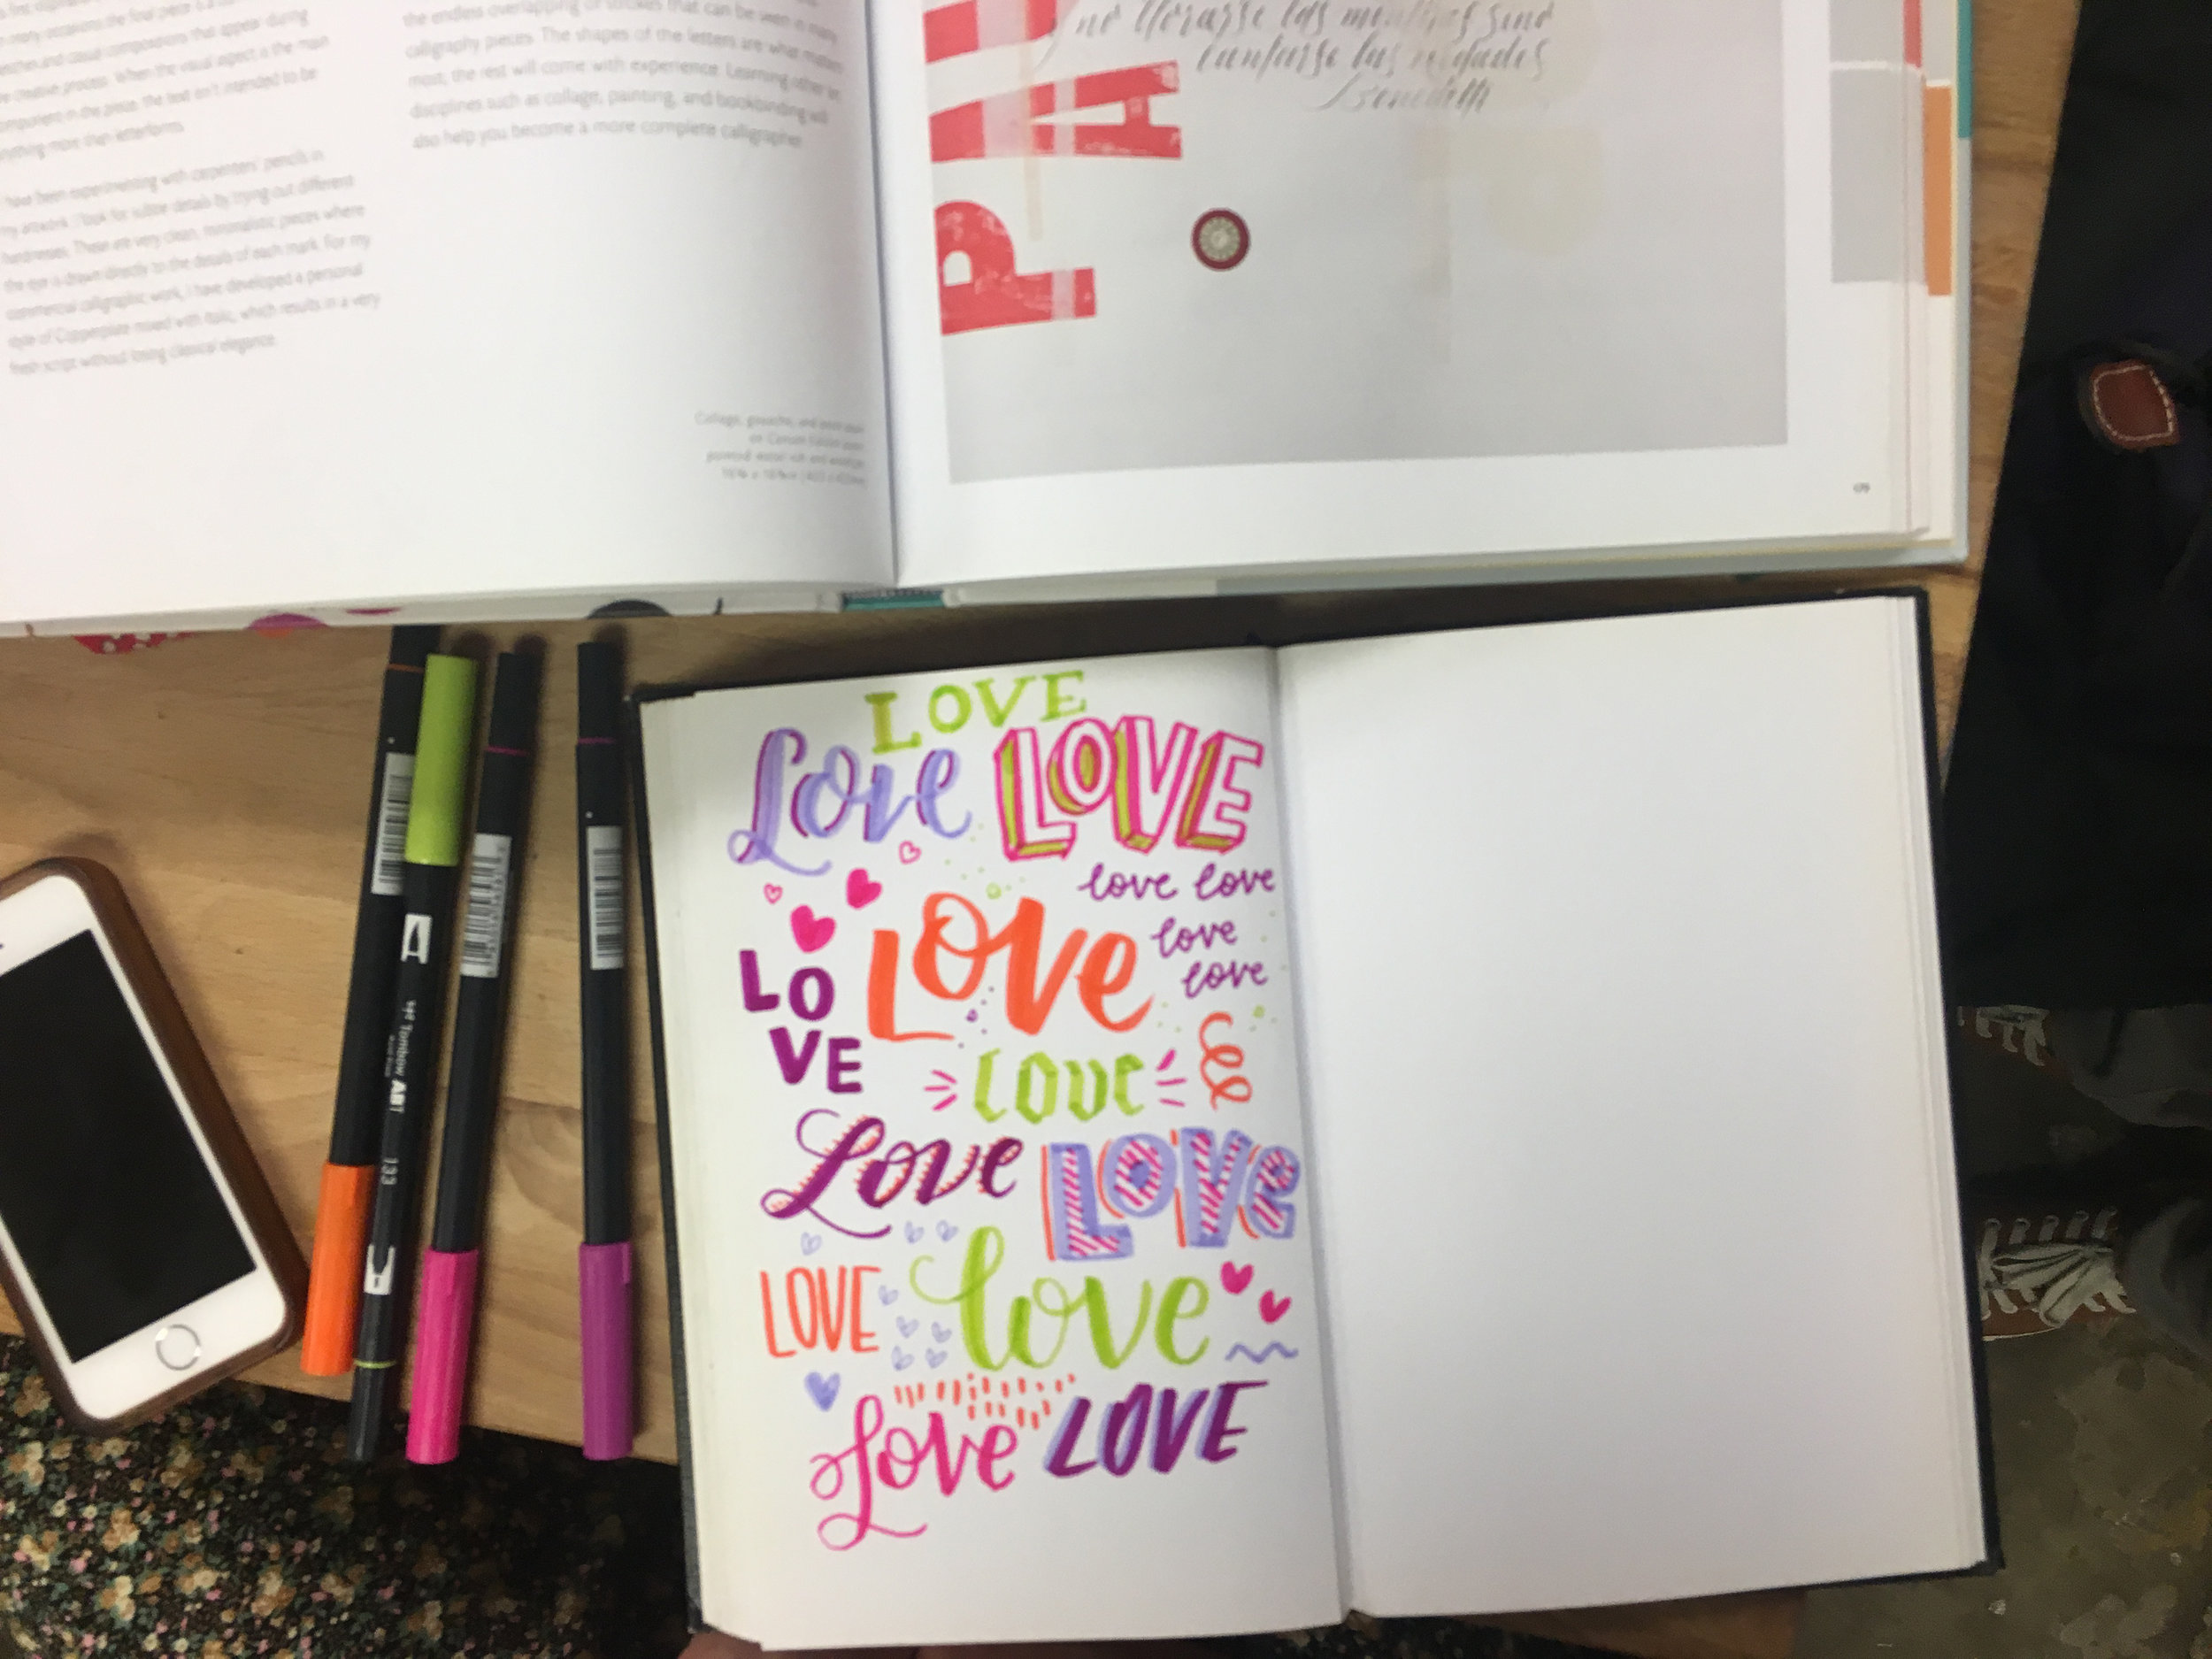 many occasions the final piece is a
sketches and casual compositions that appear during
creative process. When the visual aspect is the main
component in the piece, the text isn't intended to be
anything more than letterforms.
have been experimenting with carpenters' pencils in
my artwork. I look for subtle details by trying out different
hardnesses. These are very clean, minimalistic pieces where
the eye is drawn directly to the details of each mark. For my
commercial calligraphic work, I have developed a personal
style of Copperplate mixed with Italic, which results in a very
fresh script without losing classical elegance.
the endless overlapping of strokes that can be seen in many
calligraphy pieces. The shapes of the letters are what matters
most; the rest will come with experience. Learning other
disciplines such as collage, painting, and bookbinding will
also help you become a more complete calligrapher.
Collage, gouache, and
PA
LOVE
Love LOVE
love love
Love
love
love
LO
VE
LOVE
Love LOVe
LOVE love
Love LOVE
Tombow ABT
133